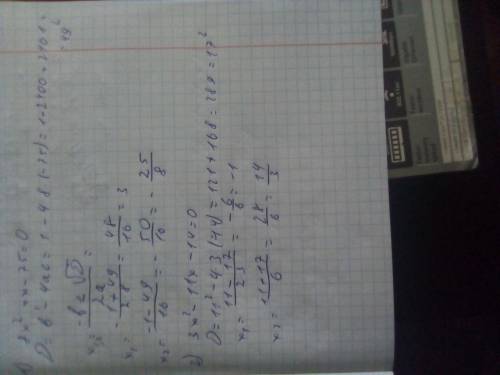 1) 8x² - x - 75 = 0
D = b² - 4ac = 1 - 4·8·(-75) = 1 + 2400 = 2401 =
= 49²
x₁,₂ = (-b ± √D)/2a =
x₁ = (-1 + 49)/2·8 = 48/16 = 3
x₂ = (-1 - 49)/16 = - 50/16 = - 25/8
2) 3x² - 11x - 14 = 0
D = 11² - 4·3·(-14) = 121 + 168 = 289 = 17²
x₁ = (11 - 17)/2·3 = - 6/6 = -1
x₂ = (11 + 17)/6 = 28/6 = 14/3